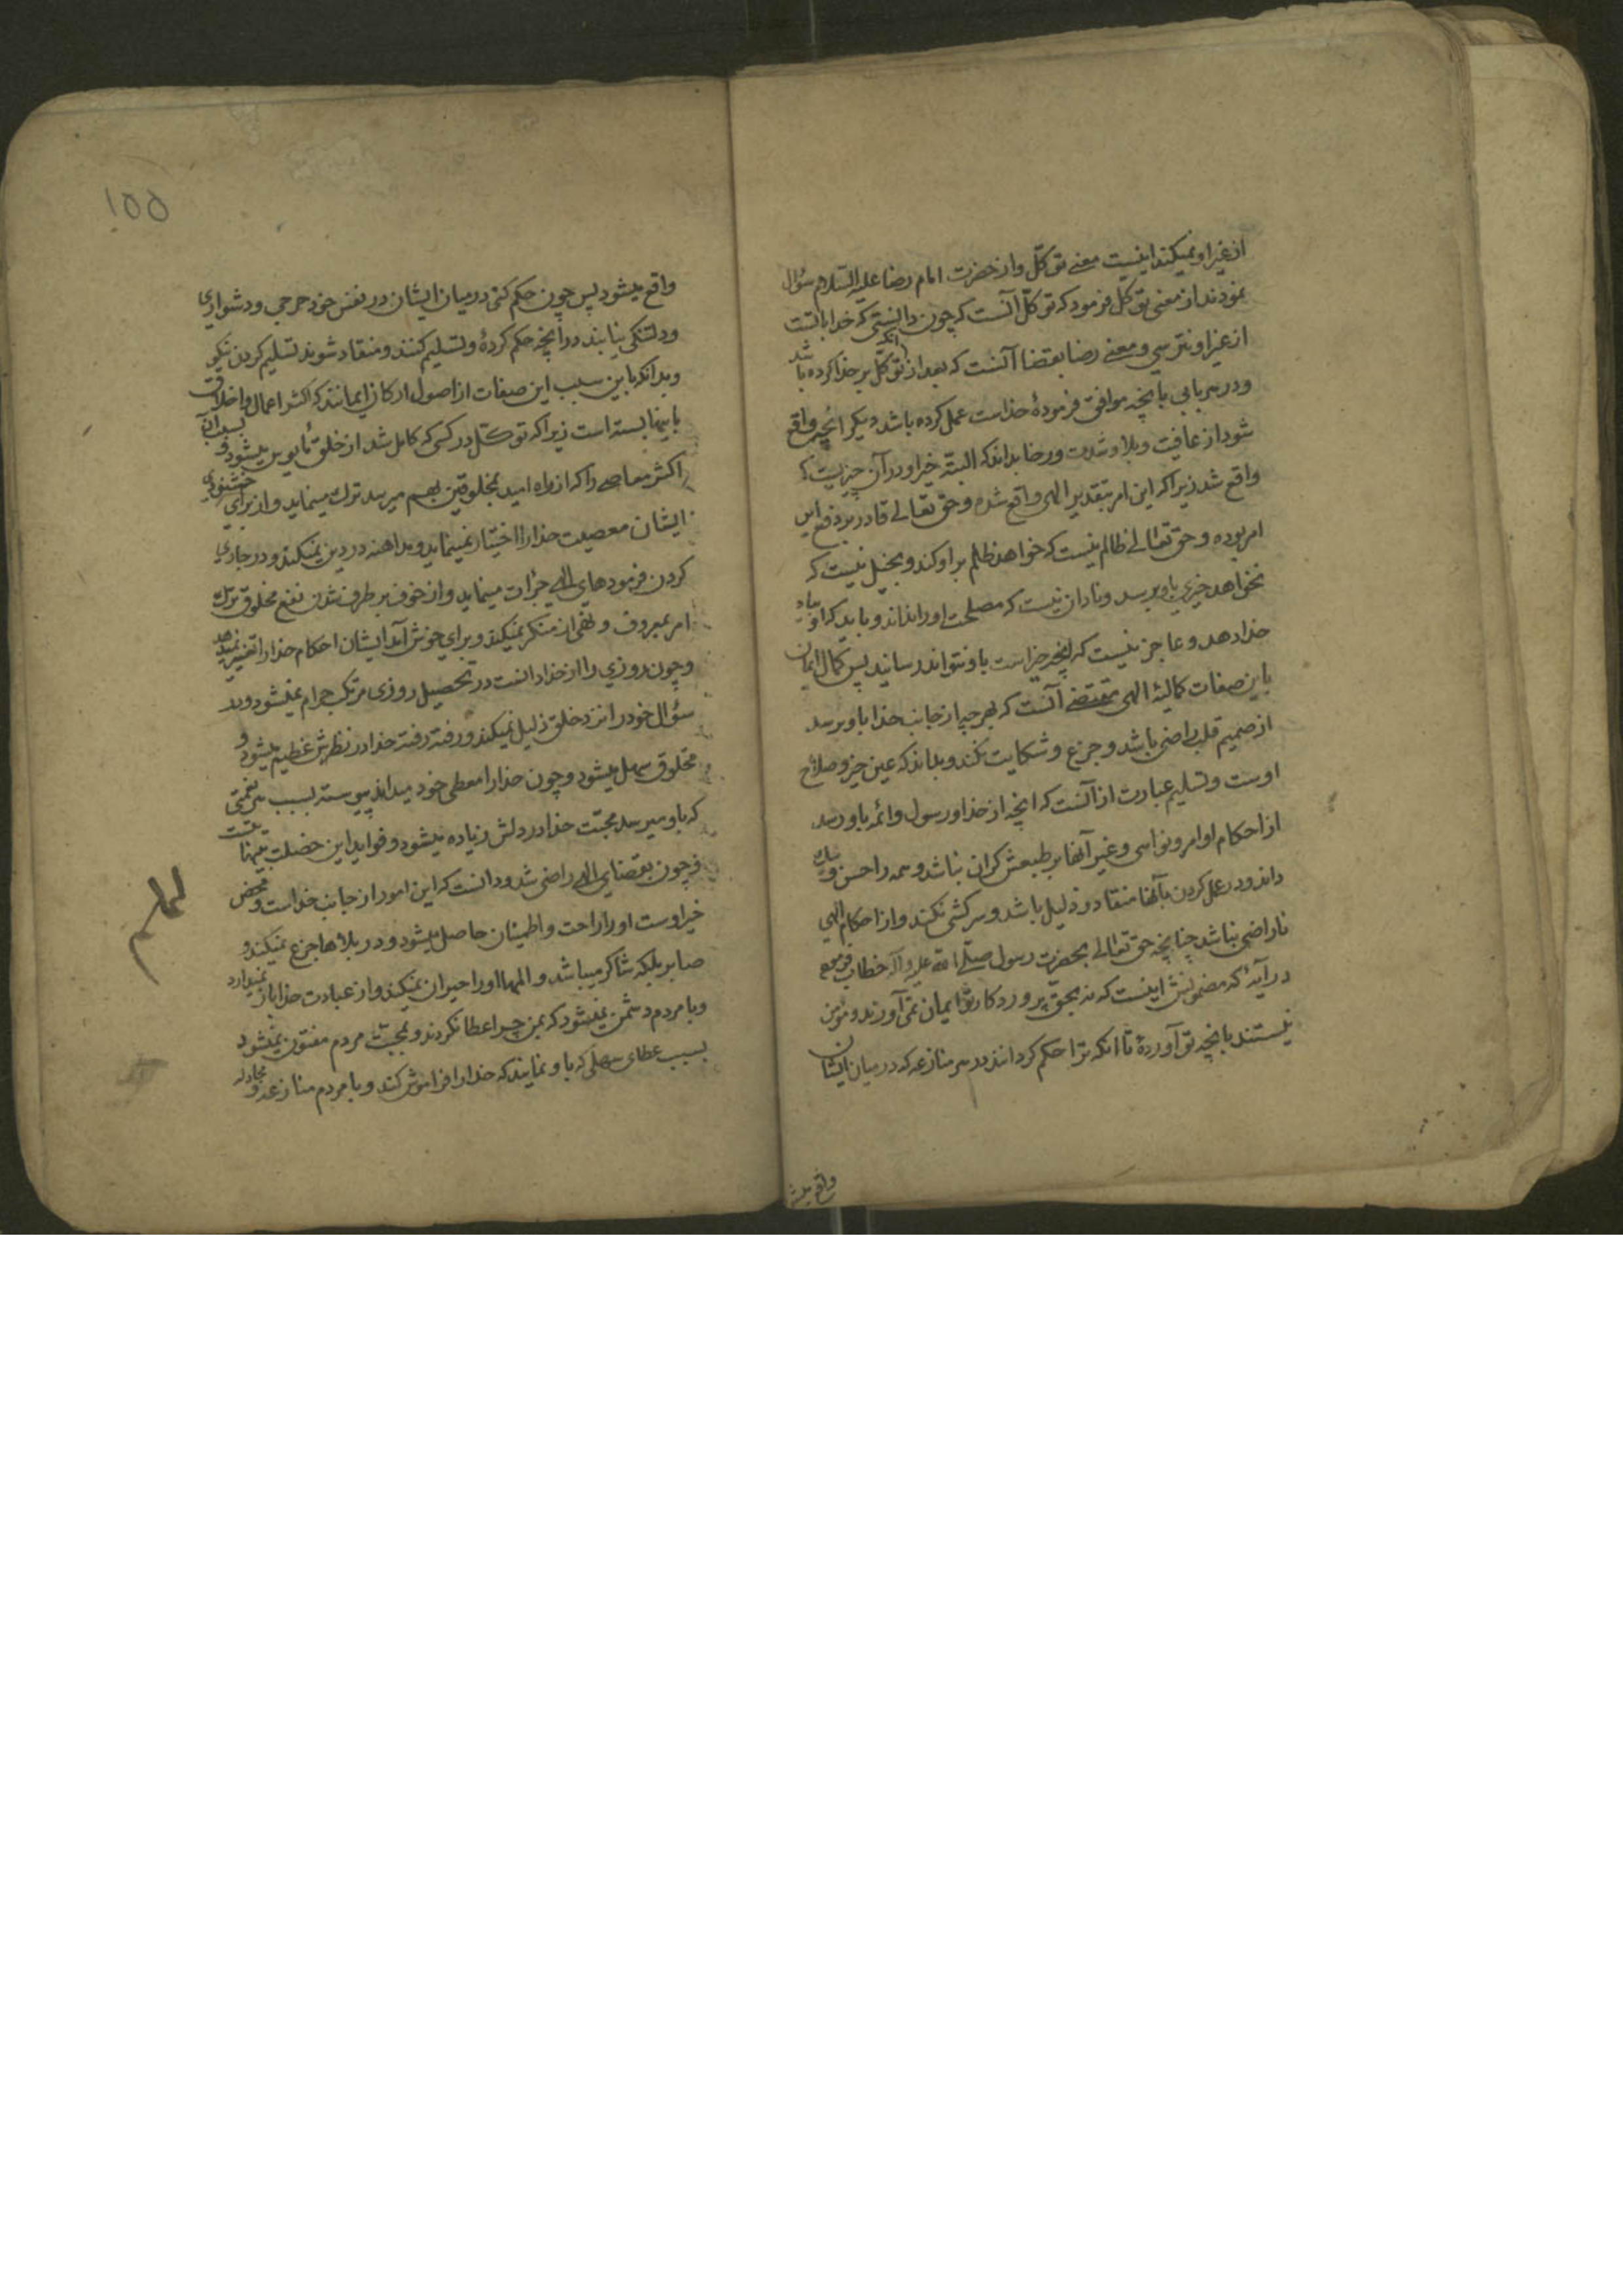 از غیر او نمیکند اینست معنے توکّل و از حضرت امام رضا علیه السّلام سؤال
نمودند از معنی توکل فرمود که توکّل آنست که چون دانستی که خدا با تست
از غیر او نترسی و معنے رضا بقضا آنست که بعد از آنکه توکّل بر خدا کرده باشد
و در هر بابی بآنچه موافق فرمودۀ خداست عمل کرده باشد دیگر آنچه واقع
شود از عافیت و بلا و شدت و رخا بداند که البتّه خیر او در آن چیزیست که
واقع شد زیرا که این امر بتقدیر الهی واقع شده و حق تعالے قادر بر دفع این
امر بوده و حق تعالے ظالم نیست که خواهد ظلم بر او کند و بخیل نیست که
نخواهد خیری باو برسد و نادان نیست که مصلحت او را نداند و باید که او بیاد
خدا دهد و عاجز نیست که آنچه خیر است باو نتواند رسانید پس کمال ایمان
باین صفات کمالیّۀ الهی مقتضے آنست که بهر چه از جانب خدا باو برسد
از صمیم قلب راضی باشد و جزع و شکایت نکند و بداند که عین خیر و صلاح
اوست و تسلیم عبارت از آنست که آنچه از خدا و رسول و ائمه باو رسد
از احکام اوامر و نواهی و غیر آنها بر طبعش گران نباشد و همه را حسن و نیک
داند و در عمل کردن بآنها منقاد و ذلیل باشد و سرکشی نکند و از احکام الهی
ناراضی نباشد چنانچه حق تعالے بحضرت رسول صلّے اللّه علیه و آله خطاب فرموده
در آیۀ که مضمونش اینست که نه بحقّ پروردکار تو ایمان نمی آورند و مؤمن
نیستند بآنچه تو آوردۀ تا آنکه ترا حکم کردانند در هر منازعه که در میان ایشان
واقع میشود
۱۵۵
واقع میشود پس چون حکم کنی در میان ایشان در نفس خود حرجی و دشواری
و دلتنکی نیابند در آنچه حکم کردۀ و تسلیم کنند و منقاد شوند تسلیم کردن نیکو
و بدانکه باین سبب این صفات از اصول ارکان ایمانند که اکثر اعمال و اخلاق
باینها بسته است زیرا که توکّل در کسی که کامل شد از خلق مأیوس میشود و بسبب آن
اکثر معاصے را که از راه امید بمخلوقین بهم میرسد ترک مینماید و از برای خوشنودی
ایشان معصیت خدا را اختیار نمینماید و مداهنه در دین نمیکند و در جاری
کردن فرمودهای الهے جرأت مینماید و از خوف بر طرف شدن نفع مخلوق ترک
امر بمعروف و نهی از منکر نمیکند و برای خوش آمد ایشان احکام خدا را تغییر نمیدهد
و چون روزی را از خدا دانست در تحصیل روزی مرتکب حرام نمیشود و بد
سؤال خود را نزد خلق ذلیل نمیکند و رفته رفته خدا در نظرش عظیم میشود و
مخلوق سهل میشود و چون خدا را معطی خود میداند پیوسته بسبب هر نعمتی
که باو میرسد محبّت خدا در دلش زیاده میشود و فواید این خصلت بی نهایتست
و چون بقضای الهے راضی شد و دانست که این امور از جانب خداست و محض
خیر اوست او را راحت و اطمینان حاصل میشود و در بلاها جزع نمیکند و
صابر بلکه شاکر میباشد و المها او را حیران نمیکند و از عبادت خدا باز نمیدارد
و با مردم دشمن نمیشود که بمن چرا عطا نکردند و بمحبّت مردم مفتون نمیشود
بسبب عطای سهلی که باو نمایند که خدا را فراموش کند و با مردم منازعه و مجادله